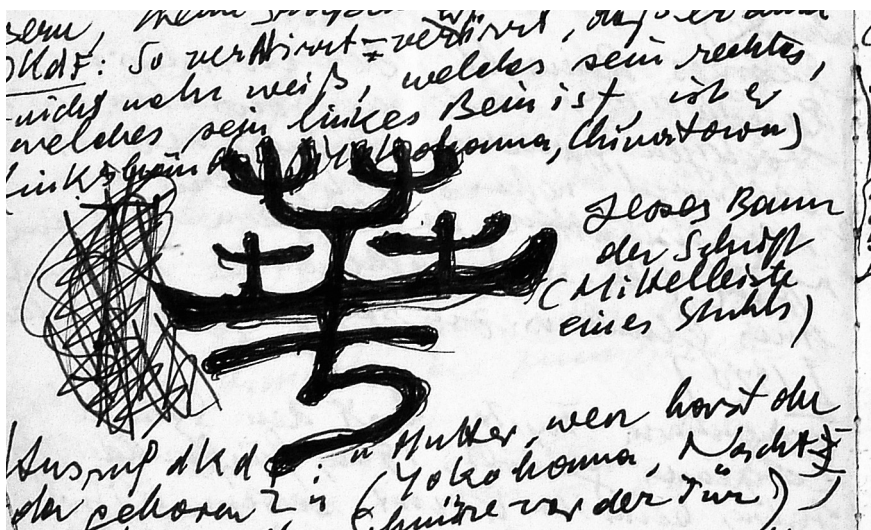 DKdF: So verwirrt = verwirrt, daß er auch
nicht mehr weiß, welches sein rechtes,
welches sein linkes Bein ist, ist er
(Yokohama, Chinatown)
Baum
der Schrift
(Mittelleiste
eines Stuhls)
Ausruf dKd : "Mutter, wen hast du
da geboren?" (Yokohama, Nacht,
vor der Tür)